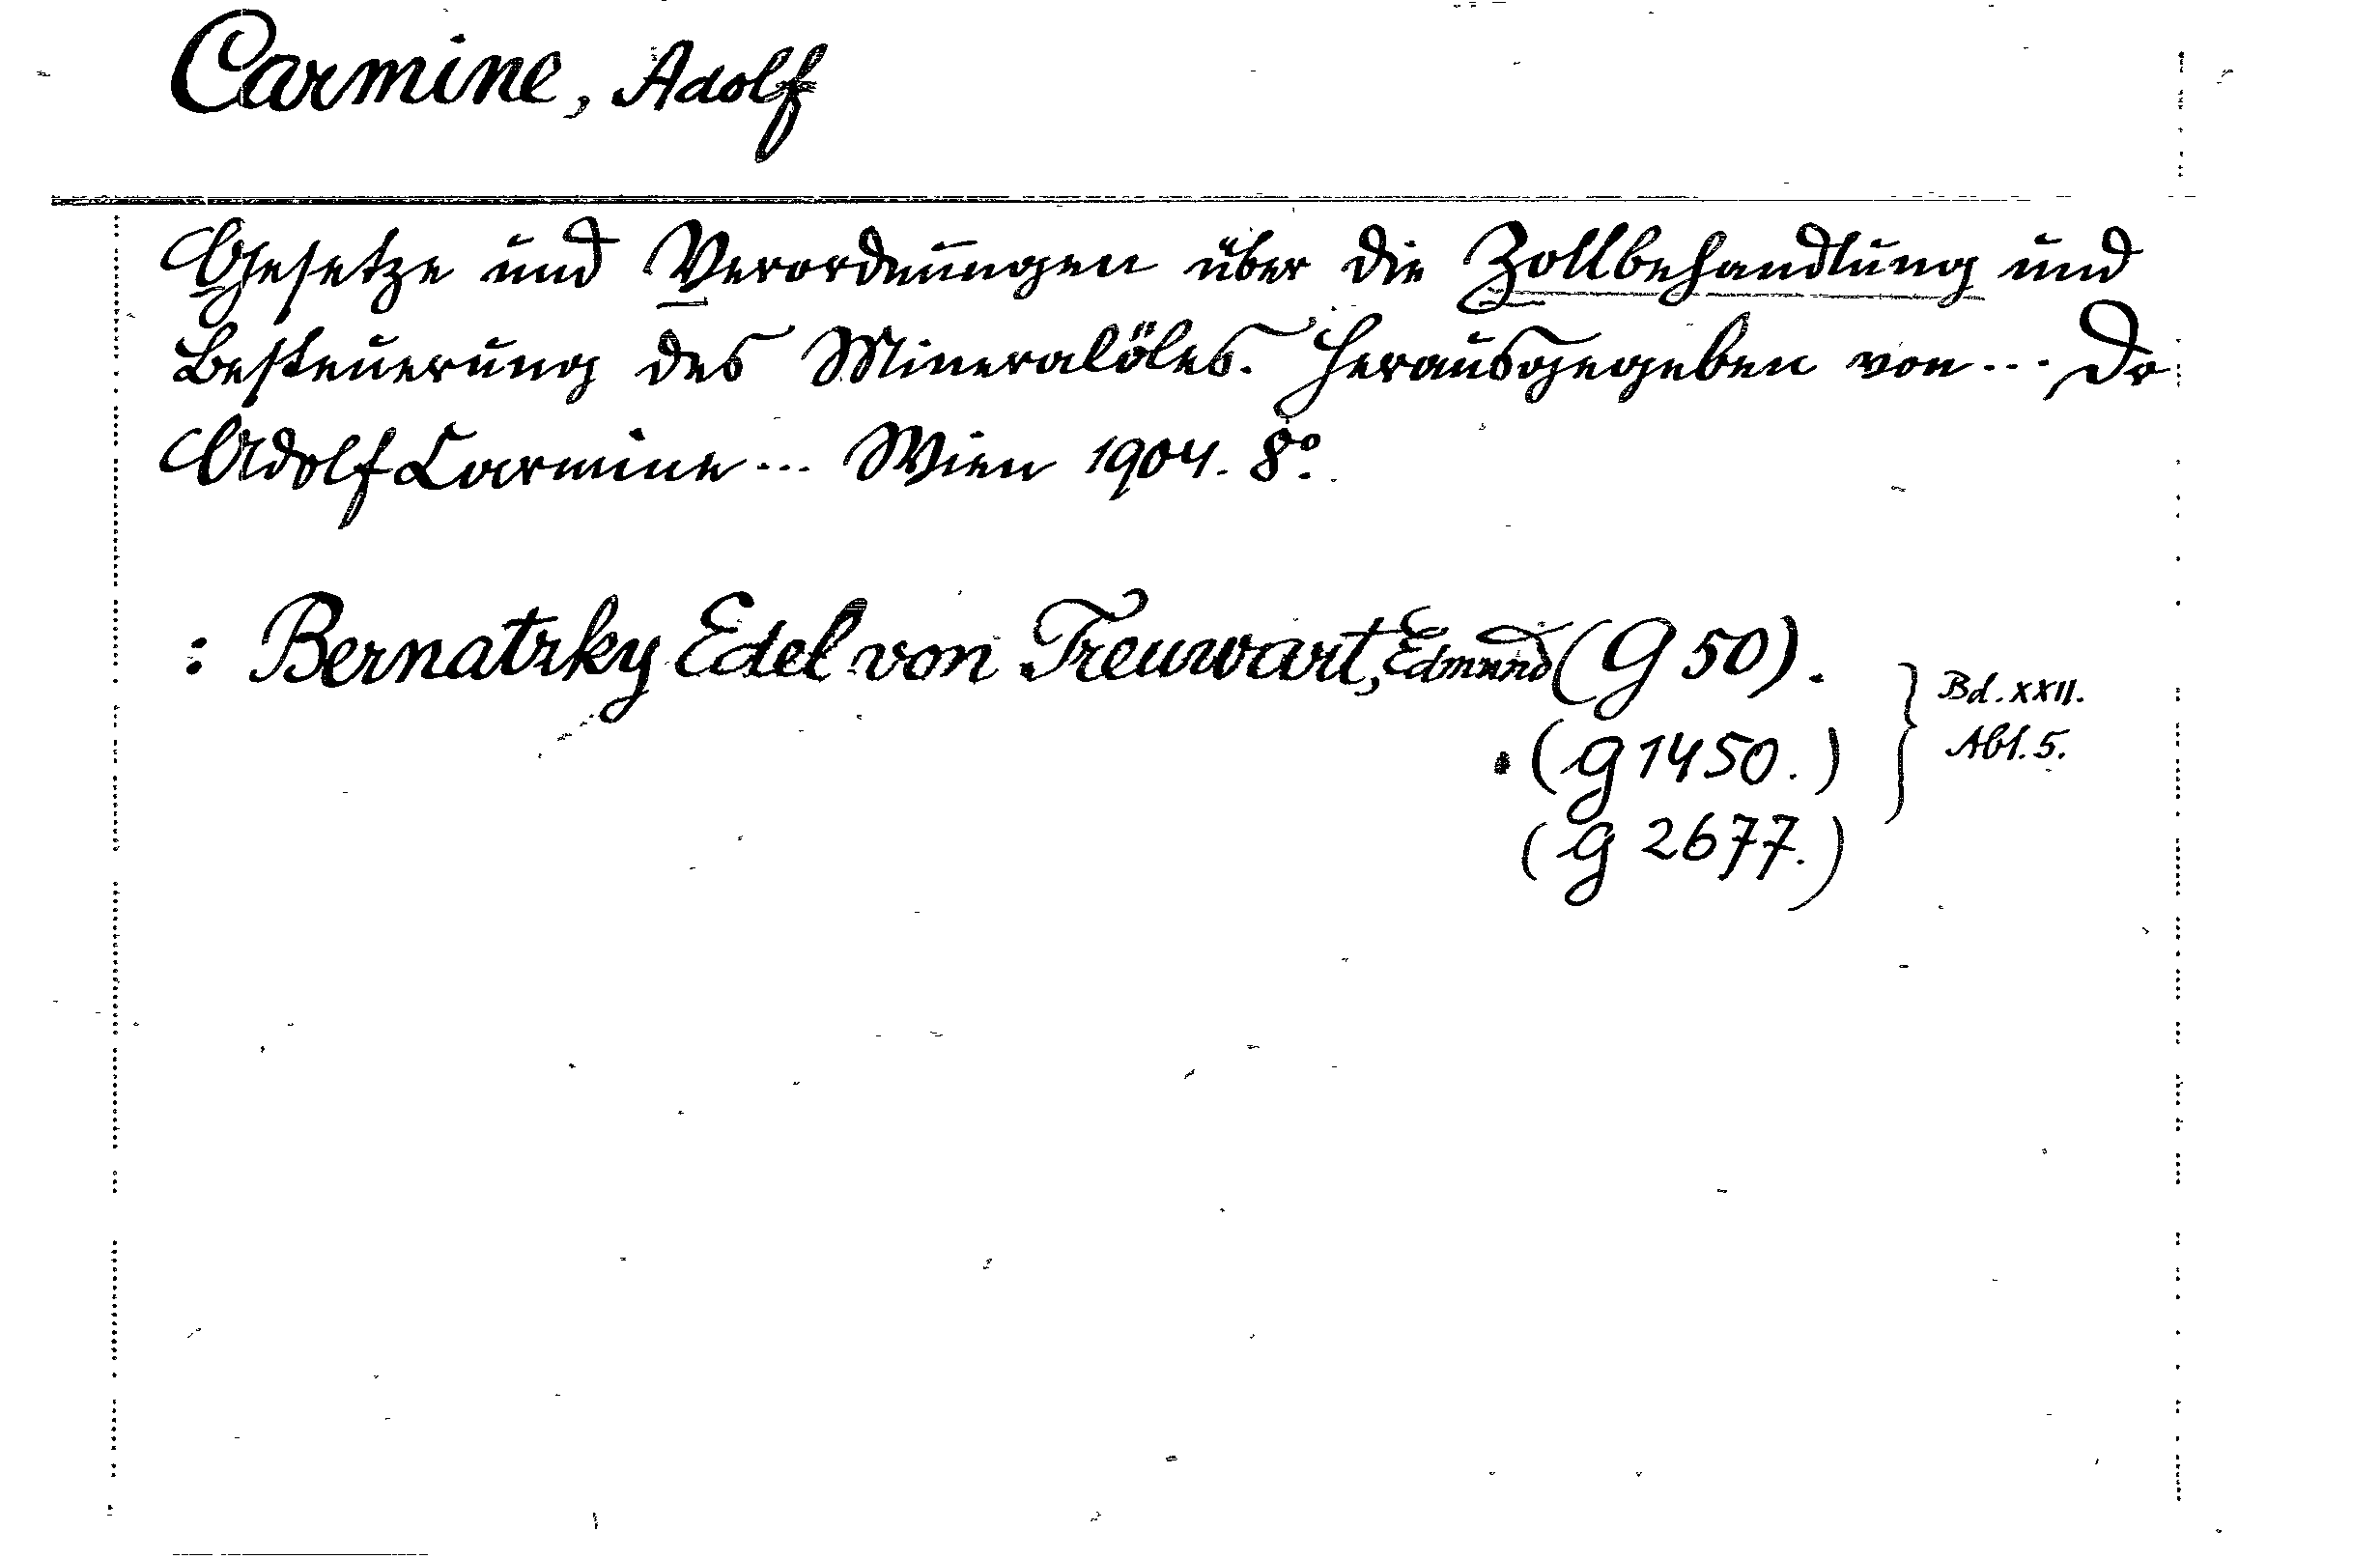 Carmine, Adolf
Gesetze und Verordnungen über die Zollbehandlung und
Besteuerung des Mineralöles. Herausgegeben von ... Dr
Adolf Carmine ... Wien 1904. 8°.
: Bernatzky Edel von Treuwart, Edmund (G 50).
(G 1450.) } Bd. XXII. Abt. 5.
(G 2677.)